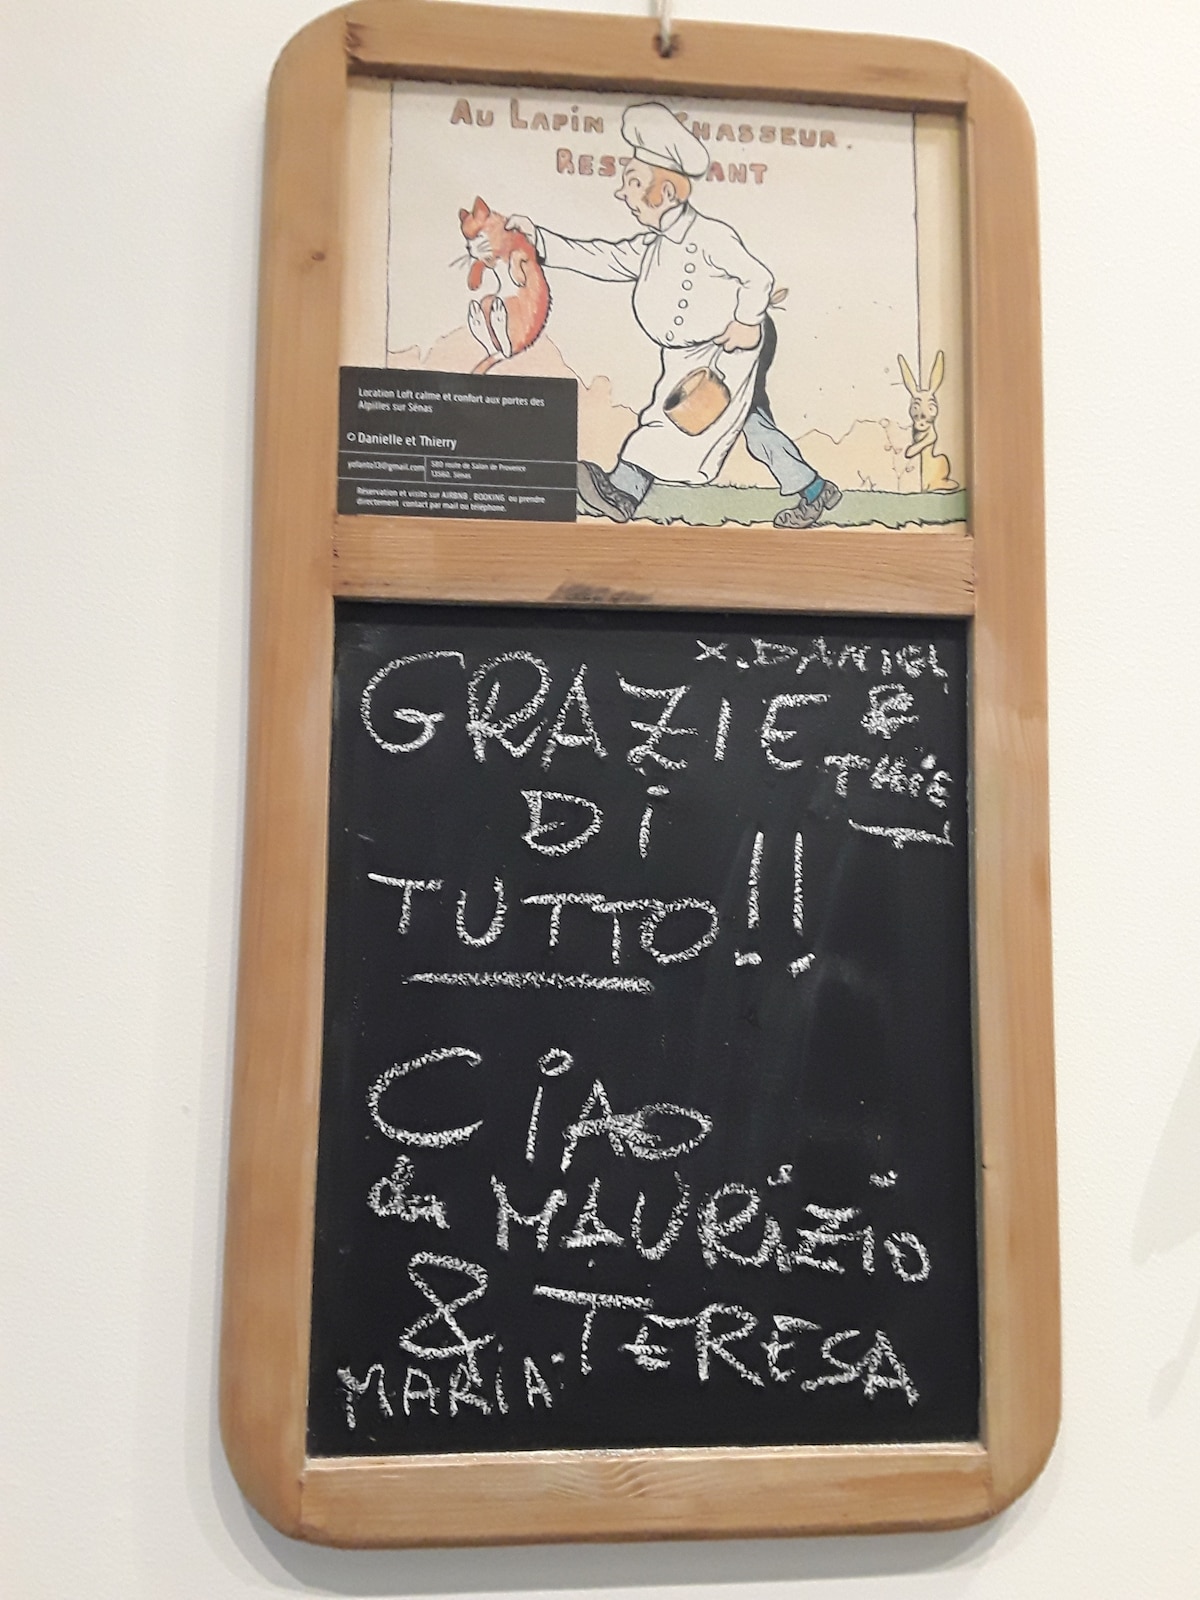 Au Lapin Chasseur.
Rest ant
Location Loft calme et confort aux portes des
Alpilles sur Sénas
Danielle et Thierry
yofanto13@gmail.com
580 route de Salon de Provence
13560, Sénas
Réservation et visite sur AIRBNB , BOOKING ou prendre
directement contact par mail ou téléphone.
X. DANIEL
GRAZIE &
THIE
DI
TUTTO!!
CIAO
& MAURIZIO
& TERESA
MARIA